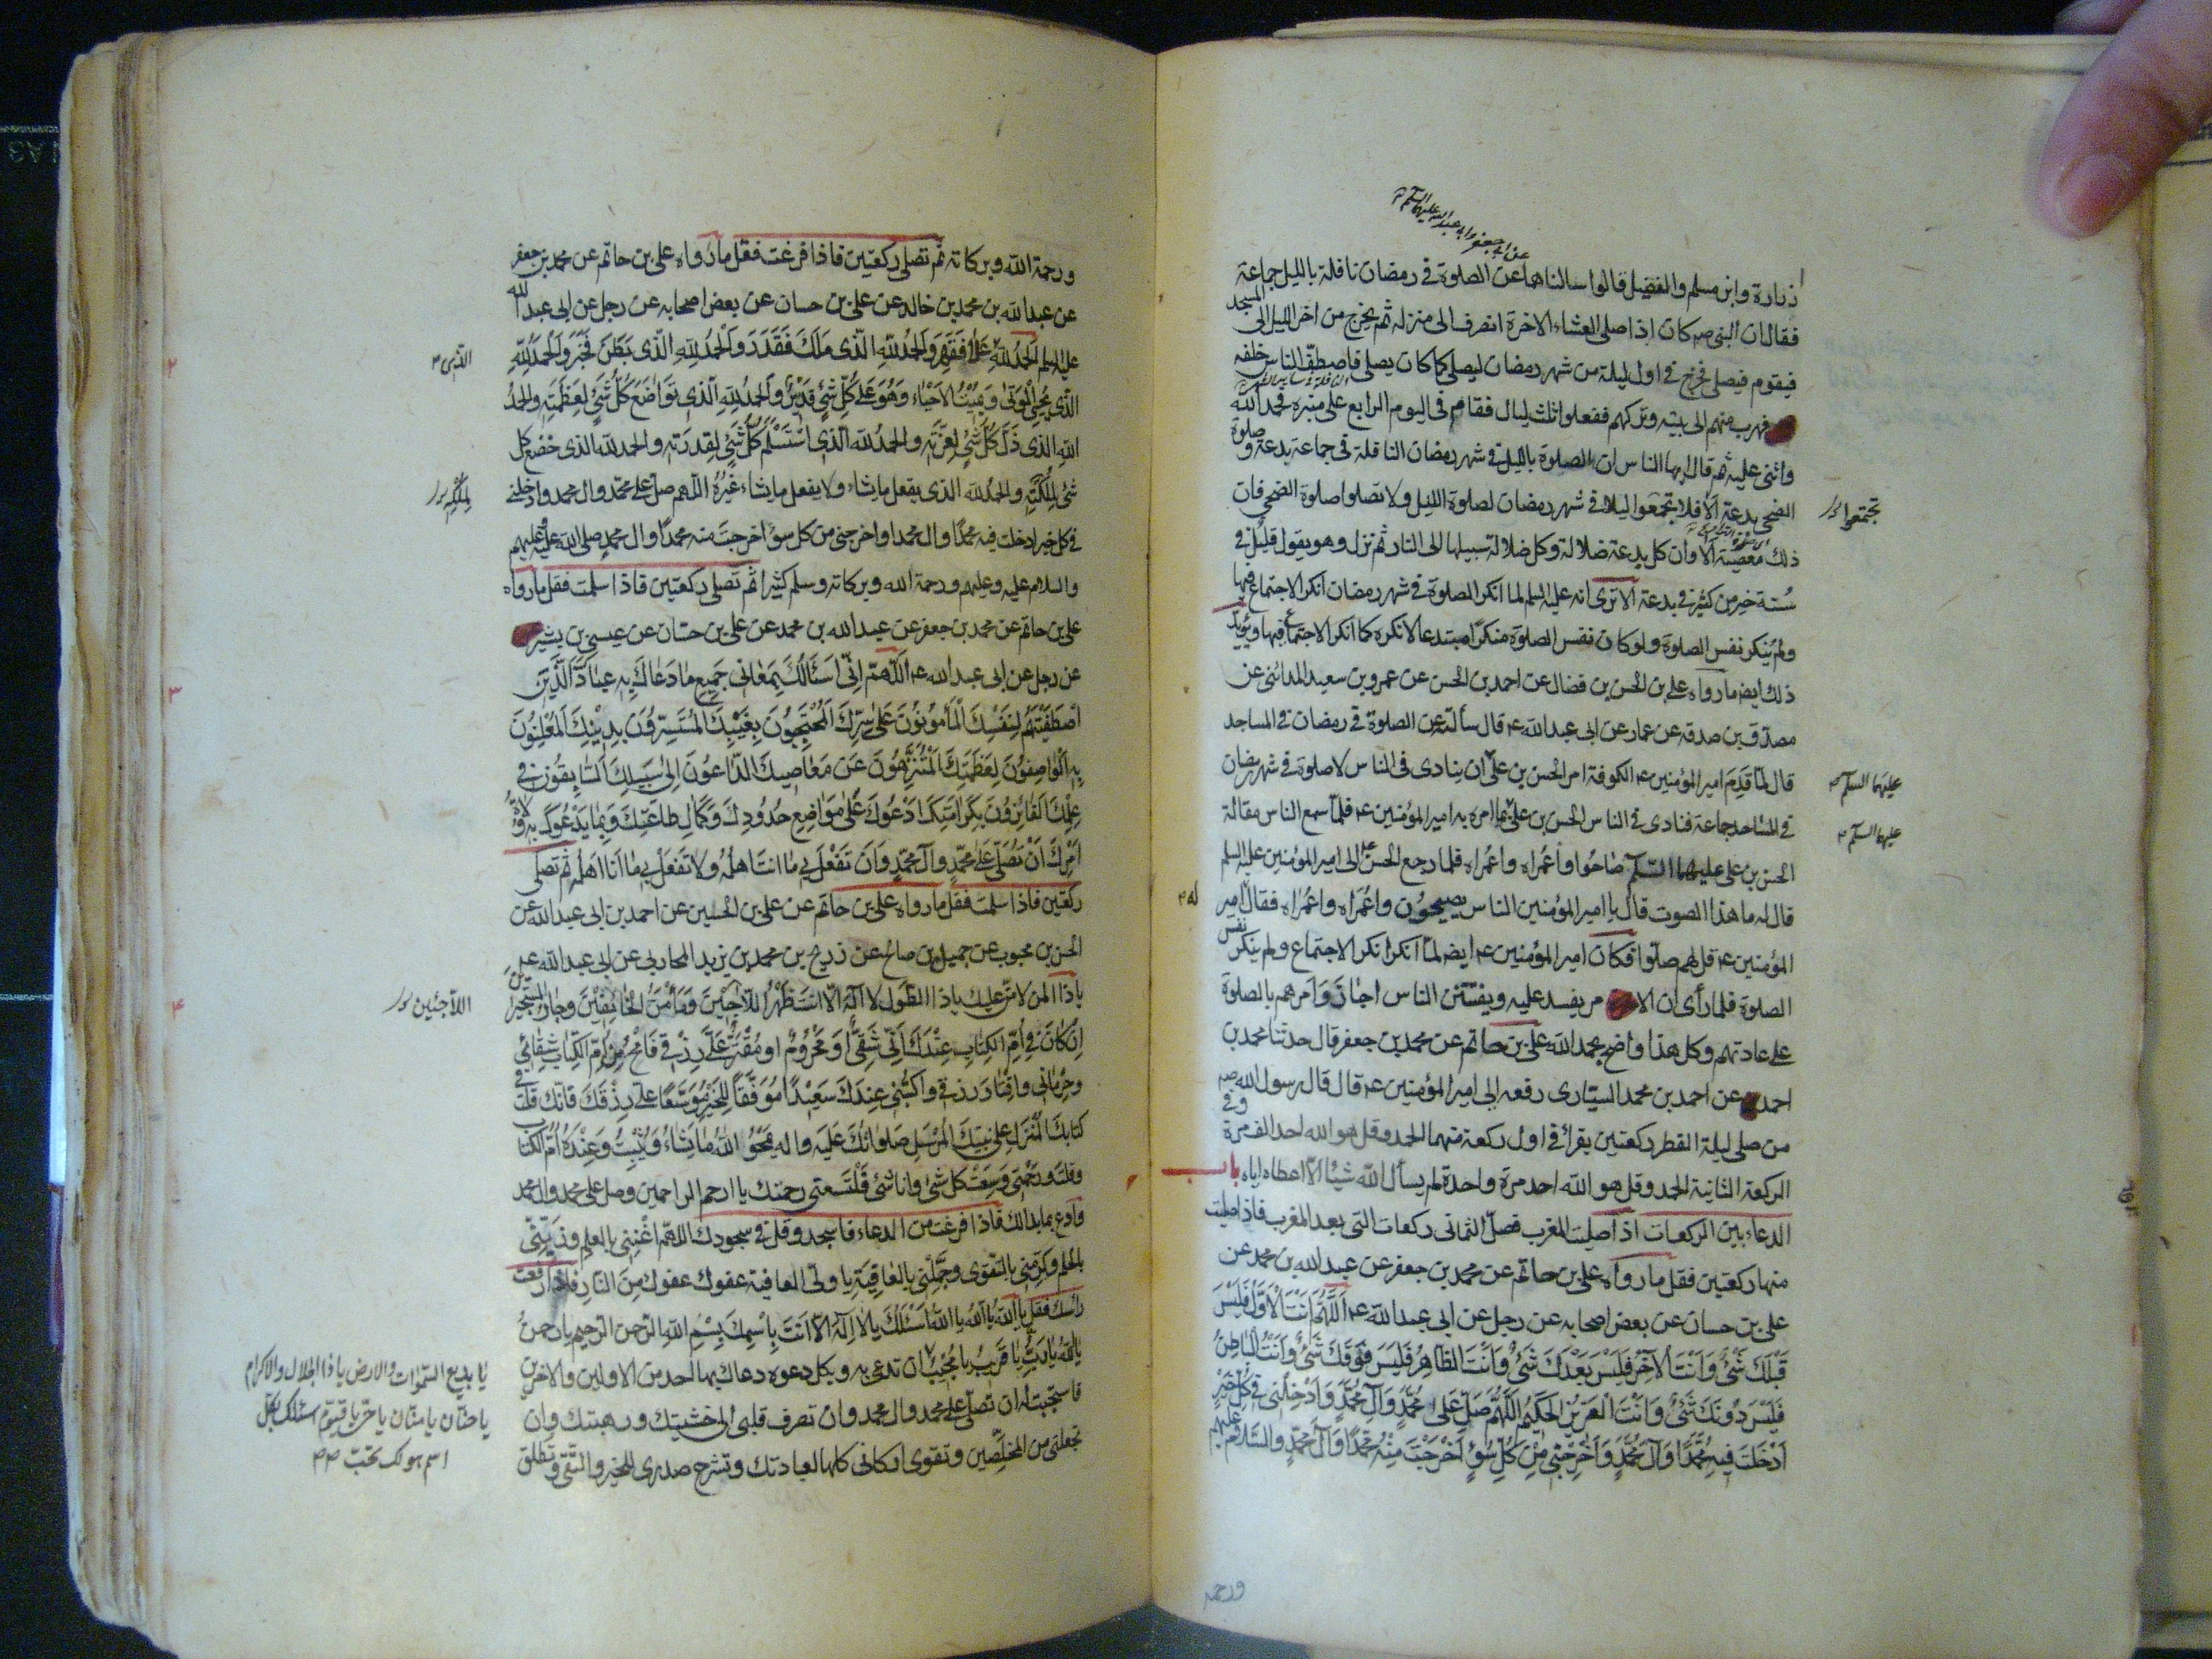 عن ابي جعفر وابي عبد الله عليهما السلم
زرارة وابن مسلم والفضيل قالوا سالناهما عن الصلوة في رمضان نافلة بالليل جماعة
فقالا ان النبي صه كان اذا صلى العشاء الاخرة انصرف الى منزله ثم يخرج من اخر الليل الى المسجد
فيقوم فيصلي فخرج في اول ليلة من شهر رمضان ليصلي كما كان يصلي فاصطف الناس خلفه
فهرب منهم الى بيته وتركهم ففعلوا ثلث ليال فقام في اليوم الرابع على منبره فحمد الله
واثنى عليه ثم قال ايها الناس ان الصلوة بالليل في شهر رمضان النافلة في جماعة بدعة وصلوة
الضحى بدعة الا فلا تجمعوا ليلا في شهر رمضان لصلوة الليل ولا تصلوا صلوة الضحى فان
تجتمعوا
ذلك معصية الا وان كل بدعة ضلالة وكل ضلالة سبيلها الى النار ثم نزل وهو يقول قليل في
سنة خير من كثير في بدعة الا ترى انه عليه السلم لما انكر الصلوة في شهر رمضان انكر الاجتماع فيها
ولم ينكر نفس الصلوة ولو كان نفس الصلوة منكرا مبتدعا لانكره كما انكر الاجتماع فيها ويؤيد
ذلك ايضه ما رواه علي بن الحسن بن فضال عن احمد بن الحسن عن عمرو بن سعيد المدائني عن
مصدق بن صدقة عن عمار عن ابي عبد الله ع قال سألته عن الصلوة في رمضان في المساجد
قال لما قدم امير المؤمنين ع الكوفة امر الحسن بن علي ان ينادى في الناس لا صلوة في شهر رمضان
عليهما السلم
في المساجد جماعة فنادى في الناس الحسن بن علي بما امره به امير المؤمنين ع فلما سمع الناس مقالة
عليهما السلم
الحسن بن علي عليهما السلم صاحوا واعمراه واعمراه فلما رجع الحسن الى امير المؤمنين عليه السلم
قال له ما هذا الصوت قال يا امير المؤمنين الناس يصيحون واعمراه واعمراه فقال امير
المؤمنين ع قل لهم صلوا فكان امير المؤمنين ع ايضه لما انكر انكر الاجتماع ولم ينكر نفس
الصلوة فلما رأى ان الامر يفسد عليه ويفتتن الناس اجاز وامرهم بالصلوة
على عادتهم وكل هذا واضح بحمد الله علي بن حاتم عن محمد بن جعفر قال حدثنا محمد بن
احمد عن احمد بن محمد السياري رفعه الى امير المؤمنين ع قال قال رسول الله صه
من صلى ليلة الفطر ركعتين يقرأ في اول ركعة منهما الحمد وقل هو الله احد الف مرة وفي
الركعة الثانية الحمد وقل هو الله احد مرة واحدة لم يسأل الله شيئا الا اعطاه اياه باب
الدعاء بين الركعات اذا صليت المغرب فصل الثماني ركعات التي بعد المغرب فاذا صليت
منها ركعتين فقل ما رواه علي بن حاتم عن محمد بن جعفر عن عبد الله بن محمد عن
علي بن حسان عن بعض اصحابه عن رجل عن ابي عبد الله ع اللهم انت الاول فليس
قبلك شئ وانت الآخر فليس بعدك شئ وانت الظاهر فليس فوقك شئ وانت الباطن
فليس دونك شئ وانت العزيز الحكيم اللهم صل على محمد وآل محمد وادخلني في كل خير
ادخلت فيه محمدا وآل محمد واخرجني من كل سوء اخرجت منه محمدا وآل محمد والسلام عليهم
ورحمة
ورحمة الله وبركاته ثم تصلي ركعتين فاذا فرغت فقل ما رواه علي بن حاتم عن محمد بن جعفر
عن عبد الله بن محمد بن خالد عن علي بن حسان عن بعض اصحابه عن رجل عن ابي عبد الله
عليه السلم الحمد لله علا فقهر والحمد لله الذي ملك فقدر والحمد لله الذي بطن فخبر والحمد لله
الذي
الذي يحيي الموتى ويميت الاحياء وهو على كل شئ قدير والحمد لله الذي تواضع كل شئ لعظمته والحمد
لله الذي ذل كل شئ لعزته والحمد لله الذي استسلم كل شئ لقدرته والحمد لله الذي خضع كل
شئ لملكته والحمد لله الذي يفعل ما يشاء ولا يفعل ما يشاء غيره اللهم صل على محمد وال محمد وادخلني
لملكه
في كل خير ادخلت فيه محمدا وال محمد واخرجني من كل سوء اخرجت منه محمدا وال محمد صلى الله عليه وعليهم
والسلام عليه وعليهم ورحمة الله وبركاته وسلم كثيرا ثم تصلي ركعتين فاذا سلمت فقل ما رواه
علي بن حاتم عن محمد بن جعفر عن عبد الله بن محمد عن علي بن حسان عن عيسى بن بشير
عن رجل عن ابي عبد الله ع اللهم اني اسئالك بمعاني جميع ما دعاك به عبادك الذين
اصطفيتهم لنفسك المأمونون على سرك المحتجبون بغيبك المستسرون بدينك المعلنون
به الواصفون لعظمتك المتنزهون عن معاصيك الداعون الى سبيلك السابقون في
علمك الفائزون بكرامتك ادعوك على مواضع حدودك وكمال طاعتك وبما يدعوك به ولاة
امرك ان تصلي على محمد وآل محمد وان تفعل بي ما انت اهله ولا تفعل بي ما انا اهله ثم تصلي
ركعتين فاذا سلمت فقل ما رواه علي بن حاتم عن علي بن الحسين عن احمد بن ابي عبد الله عن
الحسن بن محبوب عن جميل بن صالح عن ذريح بن محمد بن يزيد المحاربي عن ابي عبد الله ع
ياذا المن لا من عليك ياذا الطول لا اله الا انت ظهر اللاجين ومأمن الخائفين وجار المستجيرين
اللاجئين
ان كان في ام الكتاب عندك اني شقي او محروم او مقتر علي رزقي فامح من ام الكتاب شقائي
وحرماني واقتار رزقي واكتبني عندك سعيدا موفقا للخير موسعا علي رزقك فانك قلت في
كتابك المنزل على نبيك المرسل صلواتك عليه واله يمحو الله ما يشاء ويثبت وعنده ام الكتاب
وقلت ورحمتي وسعت كل شئ وانا شئ فلتسعني رحمتك يا ارحم الراحمين وصل على محمد وال محمد
وادع بما بدا لك فاذا فرغت من الدعاء فاسجد وقل في سجودك اللهم اغنني بالعلم وزيني
بالحلم وكرمني بالتقوى وجملني بالعافية يا ولي العافية عفوك عفوك من النار فاذا رفعت
رأسك فقل يا الله يا الله يا الله اسئلك بلا اله الا انت باسمك بسم الله الرحمن الرحيم يا رحمن
يا الله يا رب يا قريب يا مجيب ان تدعى به وبكل دعوة دعاك بها احد من الاولين والاخرين
يا بديع السموات والارض يا ذا الجلال والاكرام
يا حنان يا منان يا حي يا قيوم اسئلك بكل
اسم هو لك تحب
فاستجبت له ان تصلي على محمد وال محمد وان تصرف قلبي الى خشيتك ورهبتك وان
تجعلني من المخلصين وتقوي اركاني كلها لعبادتك وتشرح صدري للخير والتقى وتطلق